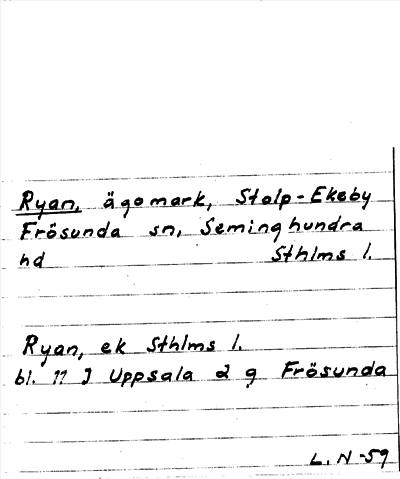 Ryan, ägomark, Stolp-Ekeby
Frösunda sn, Seminghundra
hd Sthlms l.
Ryan, ek Sthlms l.
bl. 11 J Uppsala 2 g Frösunda
L. N -59